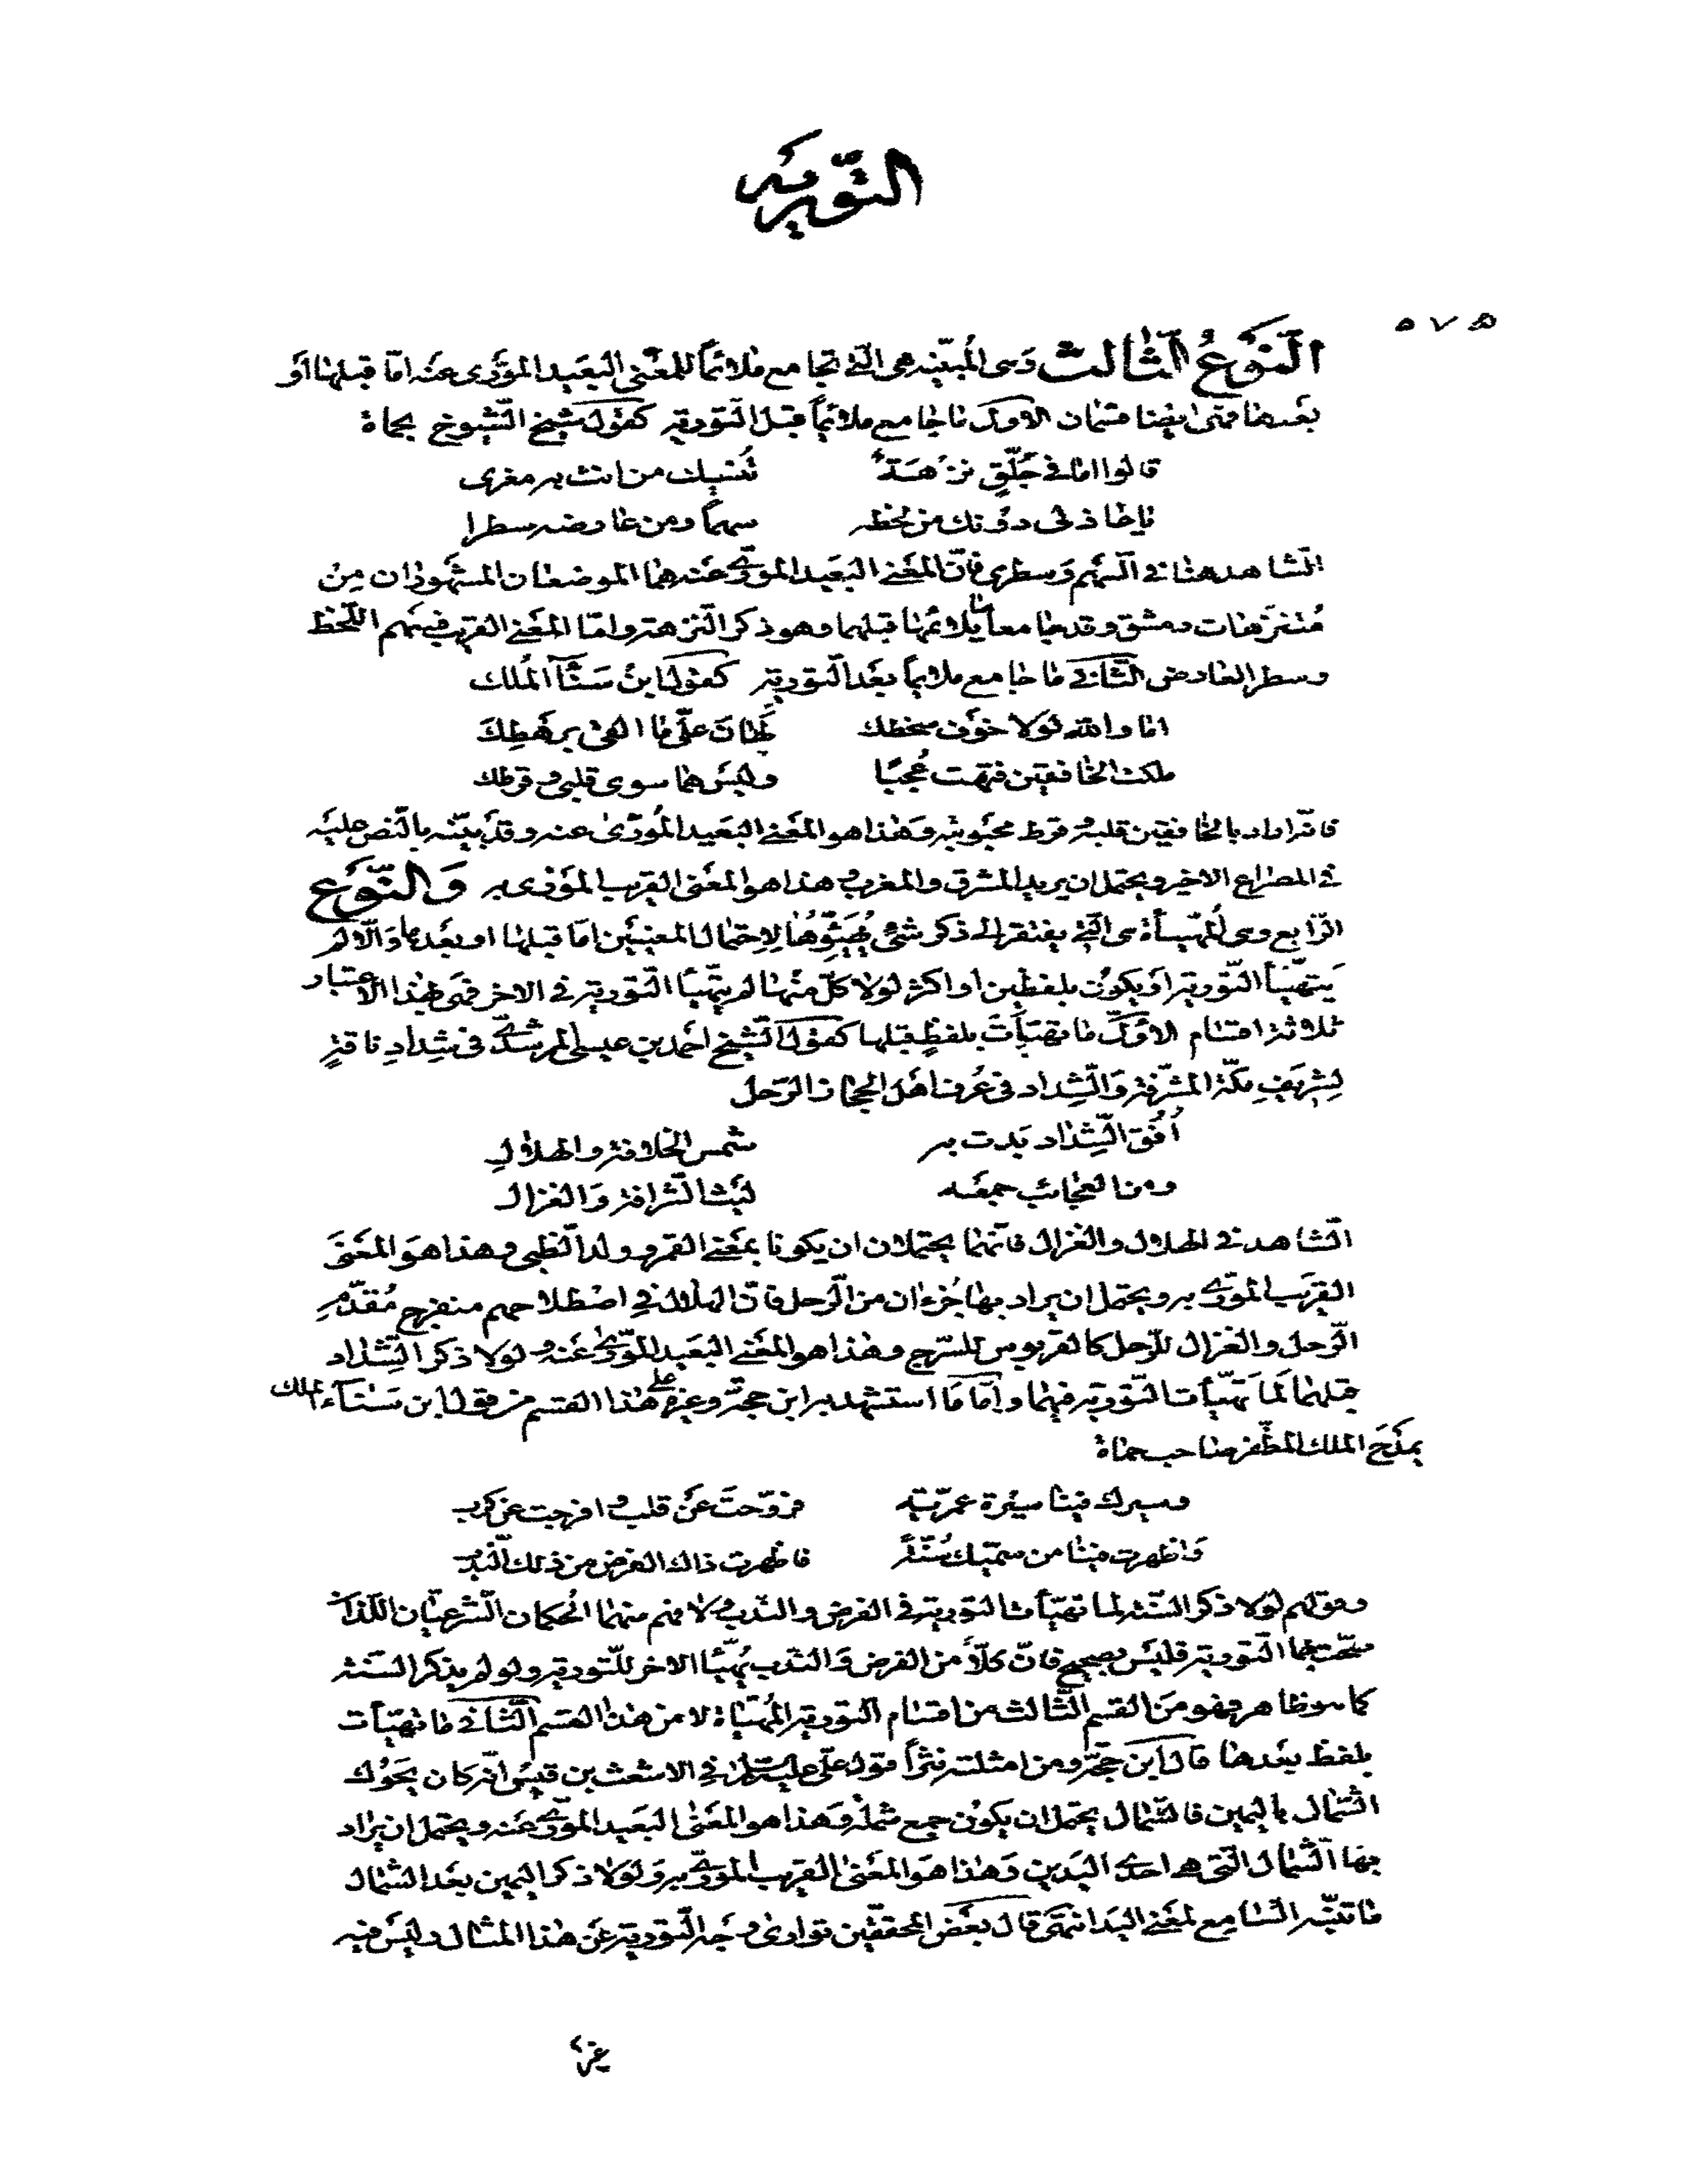 التورية
٥٧٥
النوع الثالث وهى المبينة هى التى تجامع ملائماً للمعنى البعيد المورى عنه اما قبلها او
بعدها فهى ايضا قسمان الاول ما جامع ملائماً قبل التورية كقول شيخ الشيوخ بحماة
قالوا اما فى جلق نزهة تنسيك من انت به مغرى
يا عاذلى دونك من لحظه سهماً ومن عارضه سطرا
الشاهد هنا فى السهم وسطرى فان المعنى البعيد المورى عنه هما الموضعان المشهوران من
متنزهات دمشق وقد جامعا ملائمها قبلهما وهو ذكر النزهة واما المعنى القريب فسهم اللحظ
وسطر العارض الثانى ما جامع ملائماً بعد التورية كقول ابن سنآ الملك
اما والله لولا خوف سخطك لهان على ما القى برهطك
ملكت الخافقين فتهت عجبًا وليس هما سوى قلبى وقرطك
فانه اراد بالخافقين قلبه وقرط محبوبته وهذا هو المعنى البعيد المورى عنه وقد بينه بالنص عليه
فى المصراع الاخير ويحتمل ان يريد المشرق والمغرب وهذا هو المعنى القريب المورى به والنوع
الرابع وهى المهيأة هى التى يفتقر الى ذكر شئ يهيئوها لاحتمال المعنيين اما قبلها او بعدها والا لم
يتهيأ التورية او يكون بلفظين او اكثر لولا كل منهما لم يتهيأ التورية فى الاخر فهى بهذا الاعتبار
ثلاثة اقسام الاول ما تهيأت بلفظ قبلها كقول الشيخ احمد بن عيسى المرشدى فى شداد ناقة
لشريف مكة المشرفة والشداد فى عرف اهل الحجاز الرحل
افق الشداد بدت به شمس الخلافة والهلال
ومن العجائب جمعه ليث الشرافة والغزال
الشاهد فى الهلال والغزال فانهما يحتملان ان يكونا بمعنى القمر وولد الظبى وهذا هو المعنى
القريب المورى به ويحتمل ان يراد بهما جزءان من الرحل فان الهلال فى اصطلاحهم منفرج مقدم
الرحل والغزال للرحل كالقربوس للسرج وهذا هو المعنى البعيد المورى عنه ولولا ذكر الشداد
قبلهما لما تهيأت التورية فيهما واما ما استشهد به ابن حجة وغيره على هذا القسم من قول ابن سنآء الملك
يمدح الملك المظفر صاحب حماة
وسيرك فينا سيرة عمرية فروحت عن قلب وافرجت عن كرب
واظهرت فينا من سميك سنة فاظهرت ذاك الفرض من ذلك الندب
وقولهم لولا ذكر السنة لما تهيأت التورية فى الفرض والندب ولا فهم منهما الحكمان الشرعيان اللذان
صحت بهما التورية فليس بصحيح فان كلاً من الفرض والندب يهيئا الاخر للتورية ولو لم يذكر السنة
كما هو ظاهر فهو من القسم الثالث من اقسام التورية المهيأة لا من هذا القسم الثانى ما تهيأت
بلفظ بعدها قال ابن حجة ومن امثلته نثراً قول على عليه السلام فى الاشعث بن قيس انه كان يحوك
الشمال باليمين فالشمال يحتمل ان يكون جمع شملة وهذا هو المعنى البعيد المورى عنه ويحتمل ان يراد
بها الشمال التى هى احدى اليدين وهذا هو المعنى القريب المورى به ولولا ذكر اليمين بعد الشمال
ما تنبه السامع لمعنى اليد انتهى قال بعض المحققين توارى وجه التورية عن هذا المثال وليس فيه